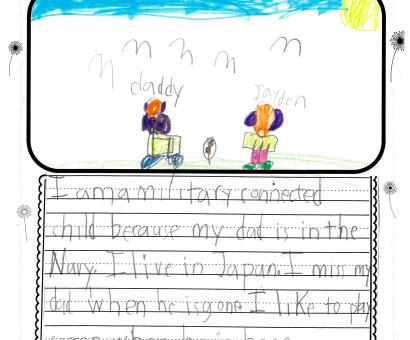 daddy
Jayden
I am a military connected
child because my dad is in the
Navy. I live in Japan. I miss my
dad when he is gone. I like to play